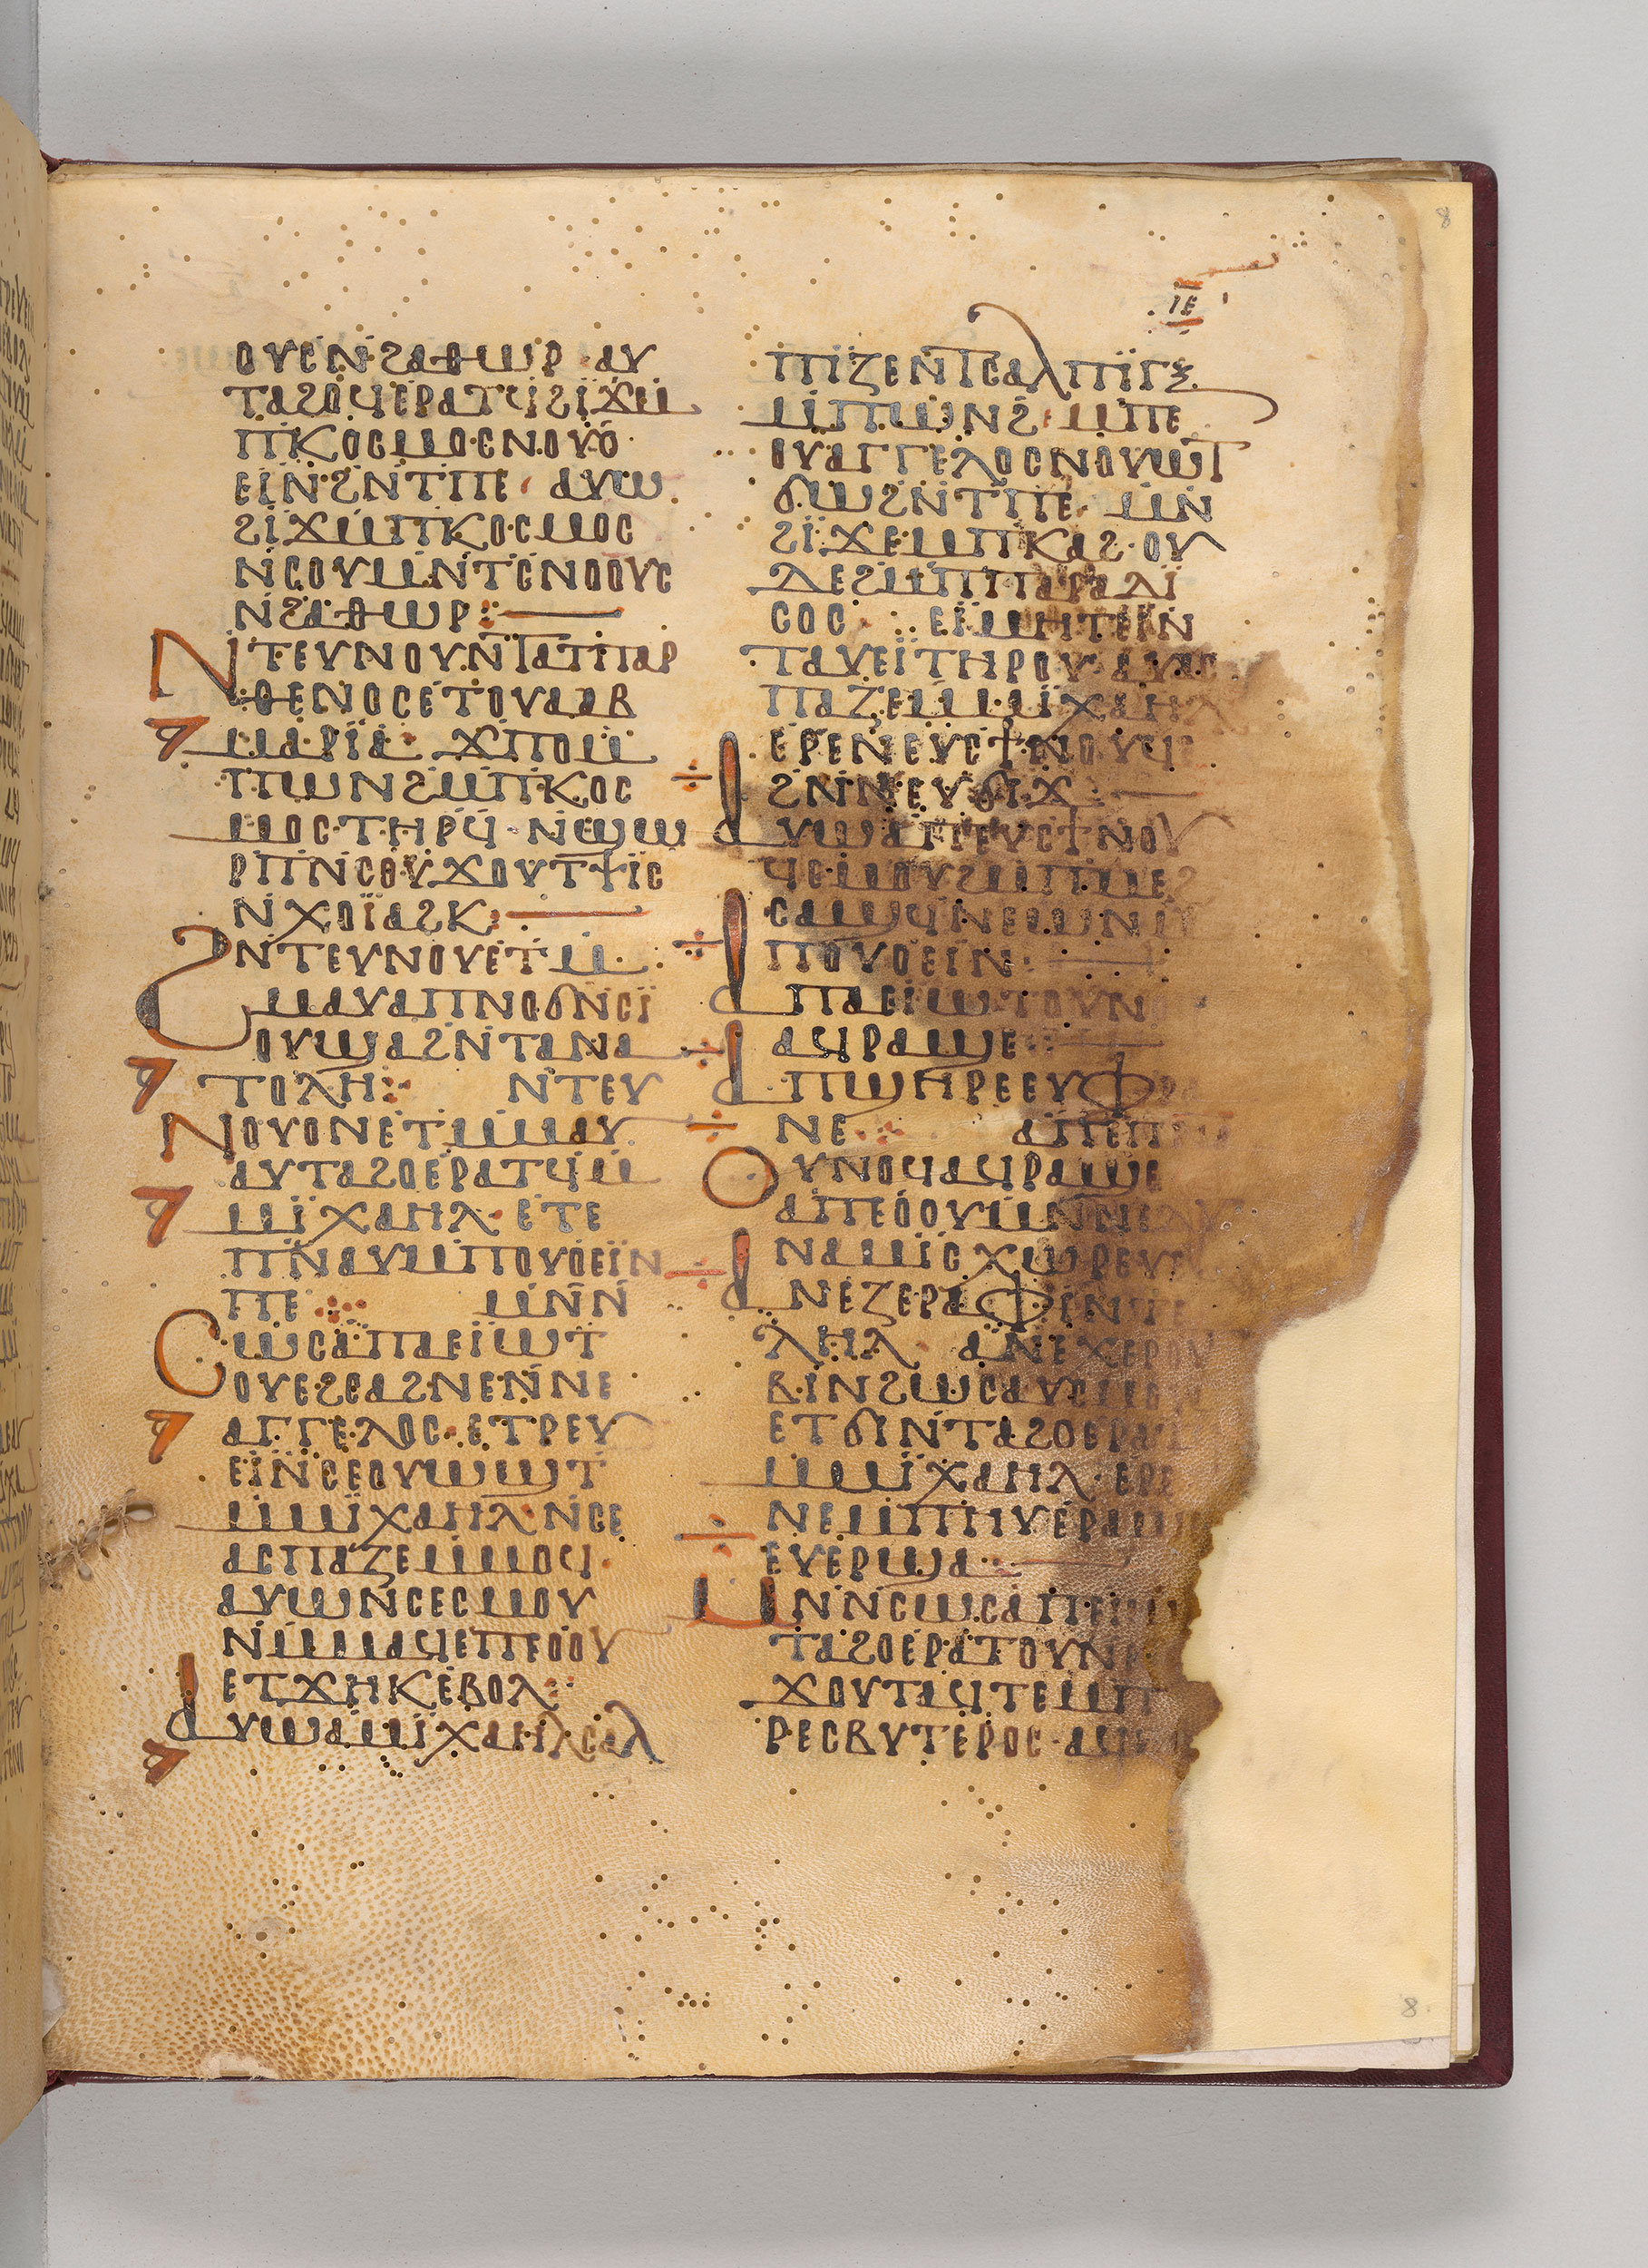 8
ⲓⲉ
ⲟⲩⲥⲛ̇ϩⲁⲑⲱⲣ ⲁⲩ
ⲧⲁϩⲟϥⲉ̇ⲣⲁⲧϥϩⲓ̈ϫⲙ̇
ⲡ̇ⲕⲟⲥⲙⲟⲥⲛⲟⲩⲟ̇
ⲉⲓ̈ⲛ̇ϩⲛ̇ⲧⲡⲉ ⲁⲩⲱ
ϩⲓ̈ϫⲙ̇ⲡⲕⲟⲥⲙⲟⲥ
ⲛ̇ⲥⲟⲩⲙⲛ̇ⲧⲥⲛⲟⲟⲩⲥ
ⲛ̇ϩⲁⲑⲱⲣ
ⲛ̇ⲧⲉⲩⲛⲟⲩⲛ̇ⲧⲁⲧⲡⲁⲣ
ⲑⲉⲛⲟⲥⲉ̇ⲧⲟⲩⲁⲁⲃ
ⲙⲁⲣⲓ̈ⲁ ϫⲡⲟⲙ̇
ⲡⲱⲛϩⲙ̇ⲡⲕⲟⲥ
ⲙⲟⲥⲧⲏⲣϥ ⲛ̇ϣⲱ
ⲣⲡⲛ̇ⲥⲟⲩϫⲟⲩⲧϯⲓ̈ⲥ
ⲛ̇ⲭⲟⲓ̈ⲁϩⲕ
ϩⲛ̇ⲧⲉⲩⲛⲟⲩⲉ̇ⲧⲙ̇
ⲙⲁⲩⲁⲡⲛⲟϭⲛ̇ⲥⲓ̈
ⲟⲩϣⲁϩⲛ̇ⲧⲁⲛⲁ
ⲧⲟⲗⲏ ⲛ̇ⲧⲉⲩ
ⲛⲟⲩⲟⲛⲉ̇ⲧⲙ̇ⲙⲁⲩ
ⲁⲩⲧⲁϩⲟⲉ̇ⲣⲁⲧϥⲙ̇
ⲙⲓ̈ⲭⲁⲏⲗ ⲉ̇ⲧⲉ
ⲡⲛ̇ⲁⲩⲙ̇ⲡⲟⲩⲟⲉⲓ̈ⲛ
ⲡⲉ ⲙⲛ̇ⲛ̇
ⲥⲱⲥⲁ̇ⲡⲁⲉⲓⲱⲧ
ⲟⲩⲉϩⲥⲁϩⲛⲉⲛ̇ⲛⲉ
ⲁⲅⲅⲉⲗⲟⲥ ⲉ̇ⲧⲣⲉⲩ
ⲉⲓ̈ⲛ̇ⲥⲉⲟⲩⲱϣⲧ
ⲙ̇ⲙⲓ̈ⲭⲁⲏⲗ ⲛ̇ⲥⲉ
ⲁⲥⲡⲁⲍⲉⲙ̇ⲙⲟϥ
ⲁⲩⲱⲛ̇ⲥⲉⲥⲙⲟⲩ
ⲛⲙ̇ⲙⲁϥⲉⲡⲉⲟⲟⲩ
ⲉⲧϫⲏⲕⲉ̇ⲃⲟⲗ
ⲁⲩⲱⲁ̇ⲙⲓ̈ⲭⲁⲏⲗⲥⲁⲗ
ⲡⲓⲍⲉⲛ̇ⲧⲥⲁⲗⲡⲓ̈ⲅⲝ
ⲙ̇ⲡⲱⲛϩ ⲙⲡⲉ
ⲟⲩⲁⲅⲅⲉⲗⲟⲥⲛⲟⲩⲱⲧ
ϭⲱϩⲛ̇ⲧⲡⲉ ⲙⲛ̇
ϩⲓ̈ϫⲉⲙ̇ⲡⲕⲁϩ ⲟⲩ
ⲇⲉϩⲙ̇ⲡⲡⲁⲣⲁⲇⲓ̈
ⲥⲟⲥ ⲉⲓ̈ⲙⲏⲧⲉⲓ̈ⲛ̇
ⲧⲁⲩⲉⲓ̈ⲧⲏⲣⲟⲩ ⲁⲩⲁⲥ
ⲡⲁⲍⲉⲙ̇ⲙⲓ̈ⲭⲁⲏⲗ
ⲉⲣⲉⲛⲉⲩⲥϯⲛⲟⲩϥⲉ
ϩⲛ̇ⲛⲉⲩϭⲓϫ
ⲁⲩⲱⲁ̇ⲡⲉⲩⲥϯⲛⲟⲩ
ϥⲉⲙⲟⲩϩⲙ̇ⲡⲙⲉϩ
ⲥⲁϣϥⲛⲉⲱⲛ
ⲡⲟⲩⲟⲉⲓⲛ
ⲁⲡⲁⲉⲓⲱⲧⲟⲩⲛ
ⲁϥⲣⲁϣⲉ
ⲁⲡϣⲏⲣⲉⲉⲩⲫⲣⲁ
ⲛⲉ ⲁ̇ⲡⲉⲡ
ⲟⲩⲛⲟϥⲁϥⲣⲁϣⲉ
ⲁⲡⲉⲟⲟⲩⲙⲛ̇
ⲛⲁⲙⲓ̈ⲥ ⲭⲱⲣⲉⲩⲉ
ⲁⲛⲉⲍⲉⲣⲁⲫⲓⲛ
ⲗⲏⲗ ⲁ̇ⲛⲉⲭⲉⲣⲟⲩ
ⲃⲓⲛϩⲱⲥ
ⲉⲧϭⲓⲛ̇ⲧⲁϩⲟⲉⲣⲁⲧ
ⲙ̇ⲙⲓ̈ⲭⲁⲏⲗ ⲉⲣⲉ
ⲛⲉⲙ̇ⲡⲏⲩⲉ̇ⲣⲁϣ
ⲉⲩⲉⲣϣⲁ
ⲙⲛ̇ⲛ̇ⲥⲱⲥⲁ̇ⲡⲉⲓ
ⲧⲁϩⲟⲉⲣⲁⲧⲟⲩⲛ
ϫⲟⲩⲧⲁϥⲧⲉⲙ̇ⲡ
ⲣⲉⲥⲃⲩⲧⲉⲣⲟⲥ
8